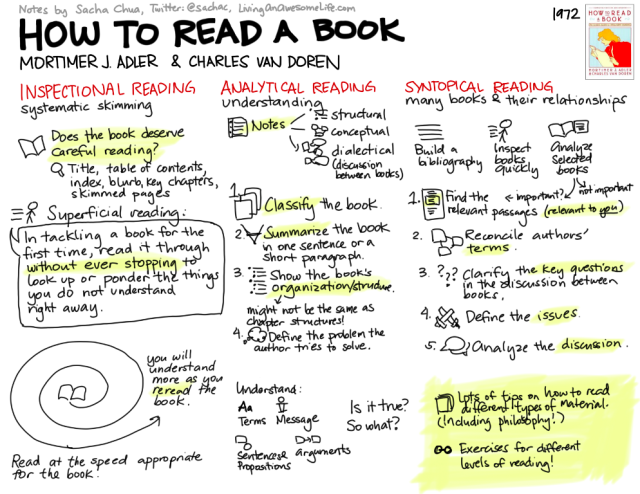 Notes by Sacha Chua, Twitter: @sachac, LivingAnAwesomeLife.com
HOW TO READ A BOOK
MORTIMER J. ADLER & CHARLES VAN DOREN
1972
HOW TO READ
A BOOK
MORTIMER J. ADLER
& CHARLES VAN DOREN
INSPECTIONAL READING
systematic skimming
Does the book deserve
careful reading?
Title, table of contents,
index, blurb, key chapters,
skimmed pages
Superficial reading:
In tackling a book for the
first time, read it through
without ever stopping to
look up or ponder the things
you do not understand
right away.
you will
understand
more as you
reread the
book.
Read at the speed appropriate
for the book.
ANALYTICAL READING
understanding
Notes
structural
conceptual
dialectical
(discussion
between books)
1. Classify the book.
2. Summarize the book
in one sentence or a
short paragraph.
3. Show the book's
organization/structure.
might not be the same as
chapter structures!
4. Define the problem the
author tries to solve.
Understand:
Aa
Terms
Message
Sentences &
Propositions
arguments
Is it true?
So what?
SYNTOPICAL READING
many books & their relationships
Build a
bibliography
Inspect
books
quickly
Analyze
selected
books
important?
not important
1. Find the
relevant passages (relevant to you)
2. Reconcile authors'
terms.
3. ?,?? Clarify the key questions
in the discussion between
books.
4. Define the issues.
5. Analyze the discussion.
Lots of tips on how to read
different types of material.
(Including philosophy!)
Exercises for different
levels of reading!